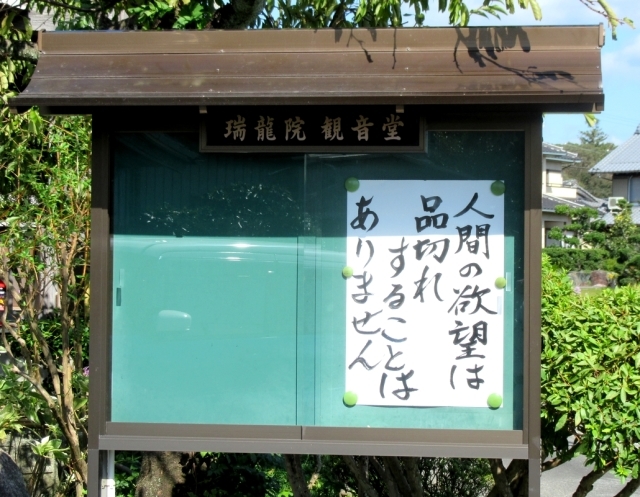 瑞龍院 観音堂
人間の欲望は
品切れ
することは
ありません